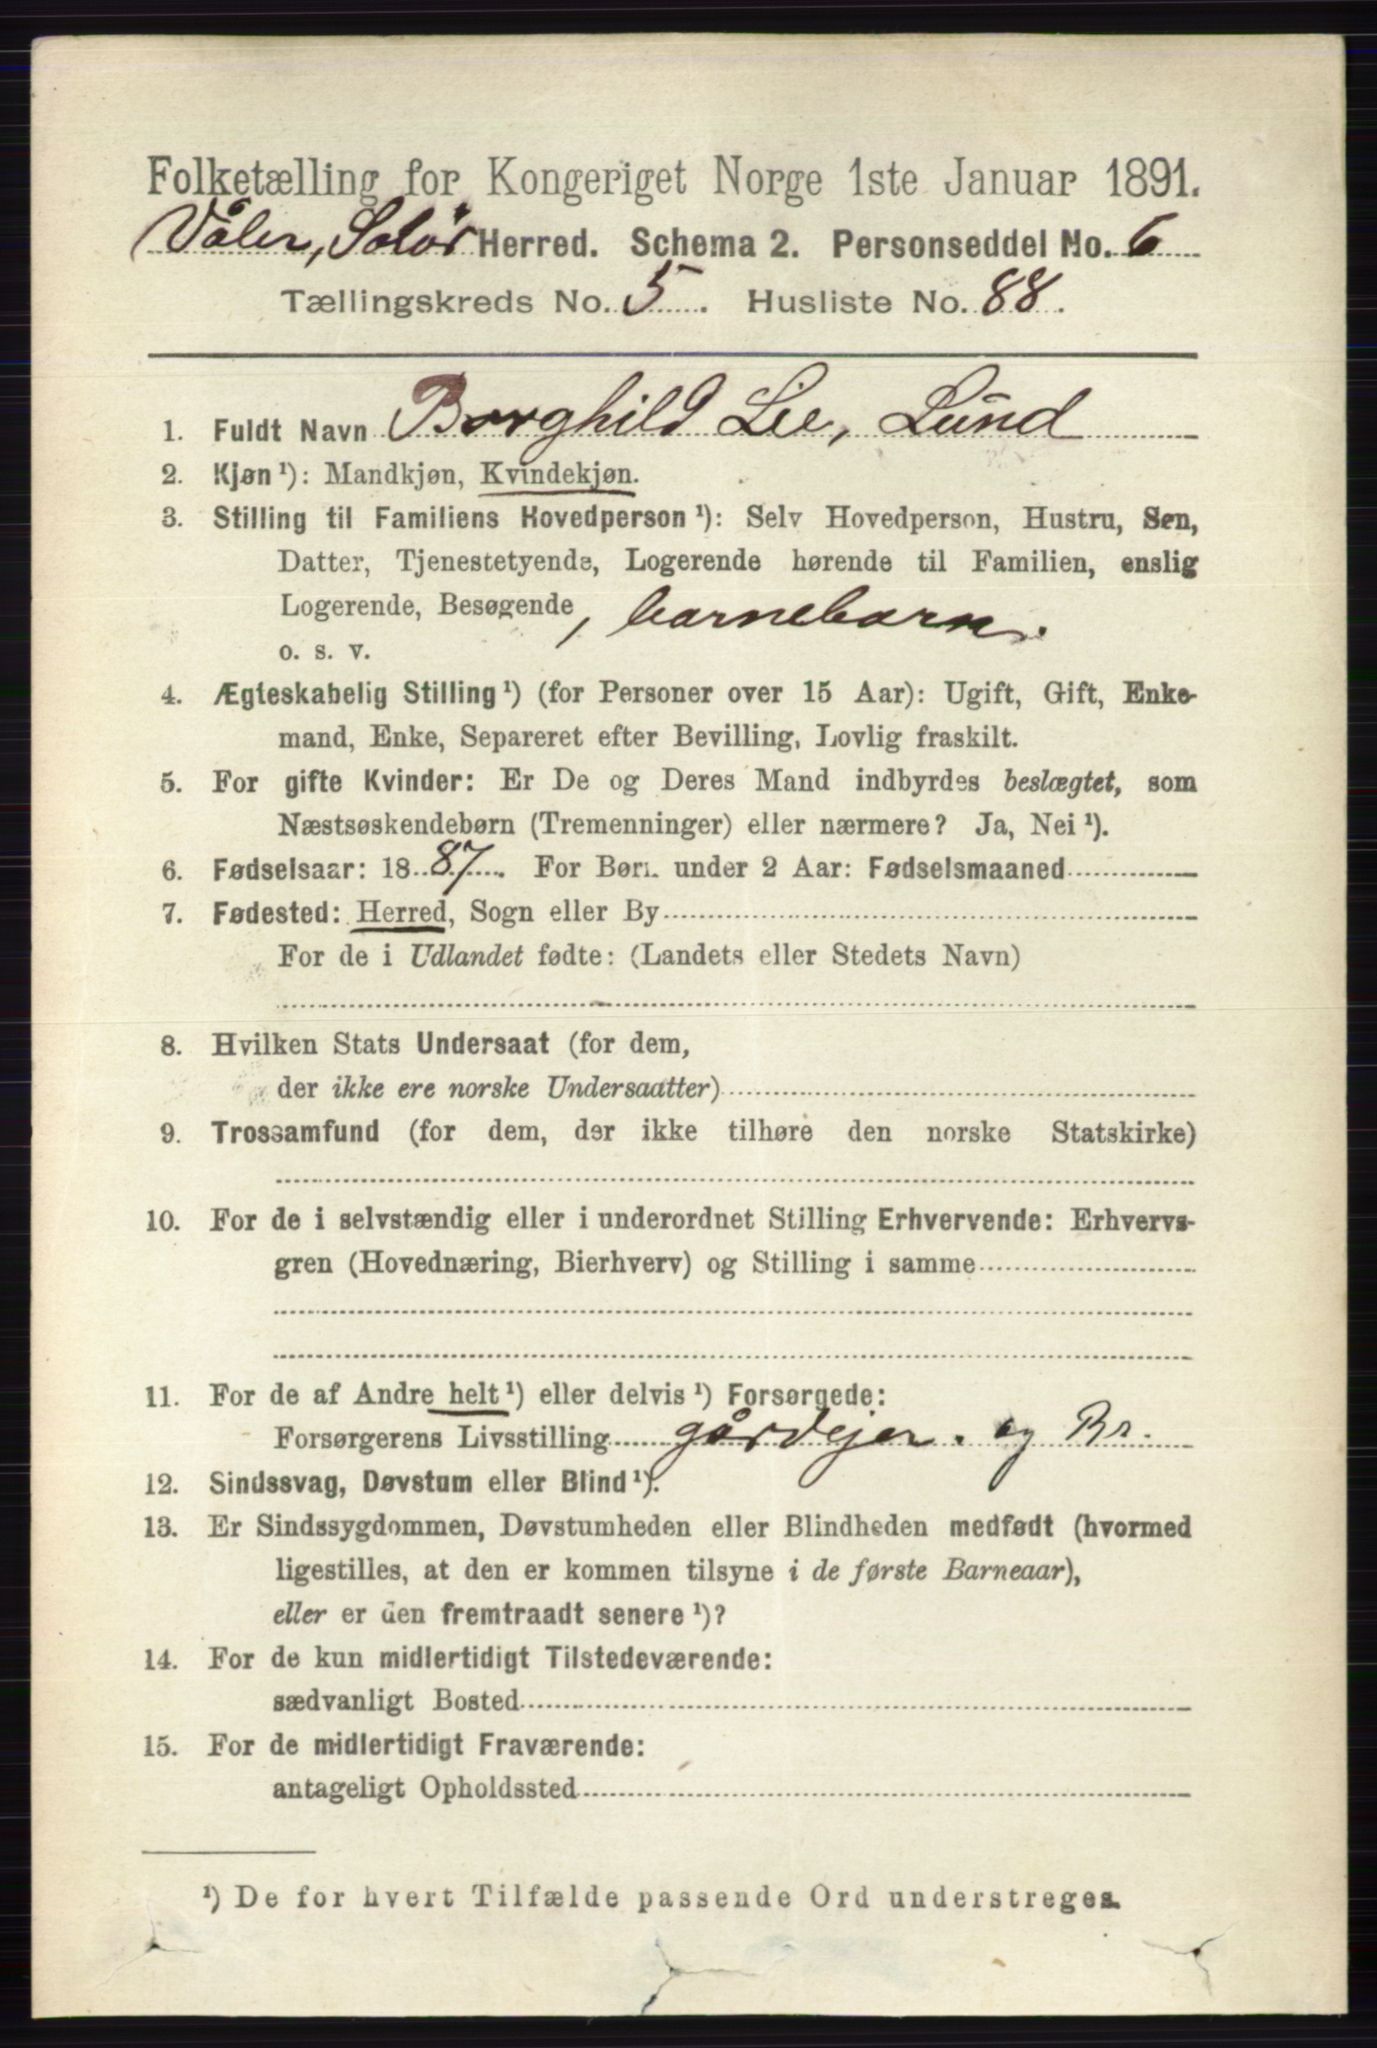 Folketælling for Kongeriget Norge 1ste Januar 1891.
Våler, Solør Herred. Schema 2. Personseddel No. 6
Tællingskreds No. 5. Husliste No. 88.
1. Fuldt Navn Borghild Lie, Lund
2. Kjøn ¹): Mandkjøn, Kvindekjøn.
3. Stilling til Familiens Hovedperson ¹): Selv Hovedperson, Hustru, Søn,
Datter, Tjenestetyende, Logerende hørende til Familien, enslig
Logerende, Besøgende, barnebarn.
o. s. v.
4. Ægteskabelig Stilling ¹) (for Personer over 15 Aar): Ugift, Gift, Enke-
mand, Enke, Separeret efter Bevilling, Lovlig fraskilt.
5. For gifte Kvinder: Er De og Deres Mand indbyrdes beslægtet, som
Næstsøskendebørn (Tremenninger) eller nærmere? Ja, Nei ¹).
6. Fødselsaar: 1887. For Børn under 2 Aar: Fødselsmaaned
7. Fødested: Herred, Sogn eller By
For de i Udlandet fødte: (Landets eller Stedets Navn)
8. Hvilken Stats Undersaat (for dem,
der ikke ere norske Undersaatter)
9. Trossamfund (for dem, der ikke tilhøre den norske Statskirke)
10. For de i selvstændig eller i underordnet Stilling Erhvervende: Erhvervs-
gren (Hovednæring, Bierhverv) og Stilling i samme
11. For de af Andre helt ¹) eller delvis ¹) Forsørgede:
Forsørgerens Livsstilling gårdejer. og Br.
12. Sindssvag, Døvstum eller Blind ¹).
13. Er Sindssygdommen, Døvstumheden eller Blindheden medfødt (hvormed
ligestilles, at den er kommen tilsyne i de første Barneaar),
eller er den fremtraadt senere ¹)?
14. For de kun midlertidigt Tilstedeværende:
sædvanligt Bosted
15. For de midlertidigt Fraværende:
antageligt Opholdssted
¹) De for hvert Tilfælde passende Ord understreges.